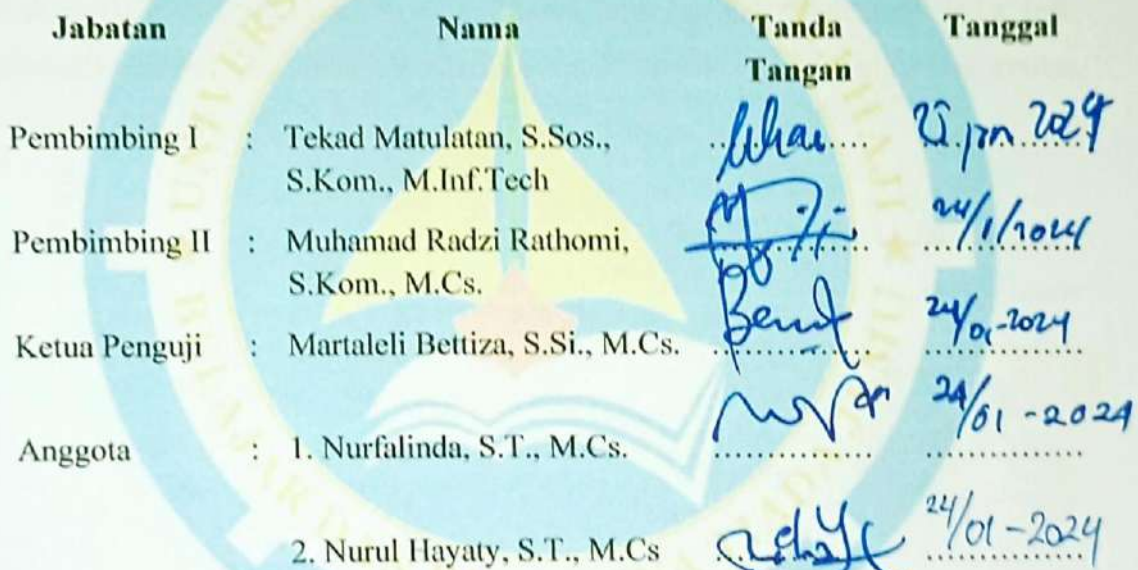 Jabatan Nama Tanda Tangan Tanggal
Pembimbing I : Tekad Matulatan, S.Sos.,
S.Kom., M.Inf.Tech
Pembimbing II : Muhamad Radzi Rathomi, 24/1/2024
S.Kom., M.Cs.
Ketua Penguji : Martaleli Bettiza, S.Si., M.Cs. 24/01-2024
Anggota : 1. Nurfalinda, S.T., M.Cs. 24/01-2024
2. Nurul Hayaty, S.T., M.Cs 24/01-2024